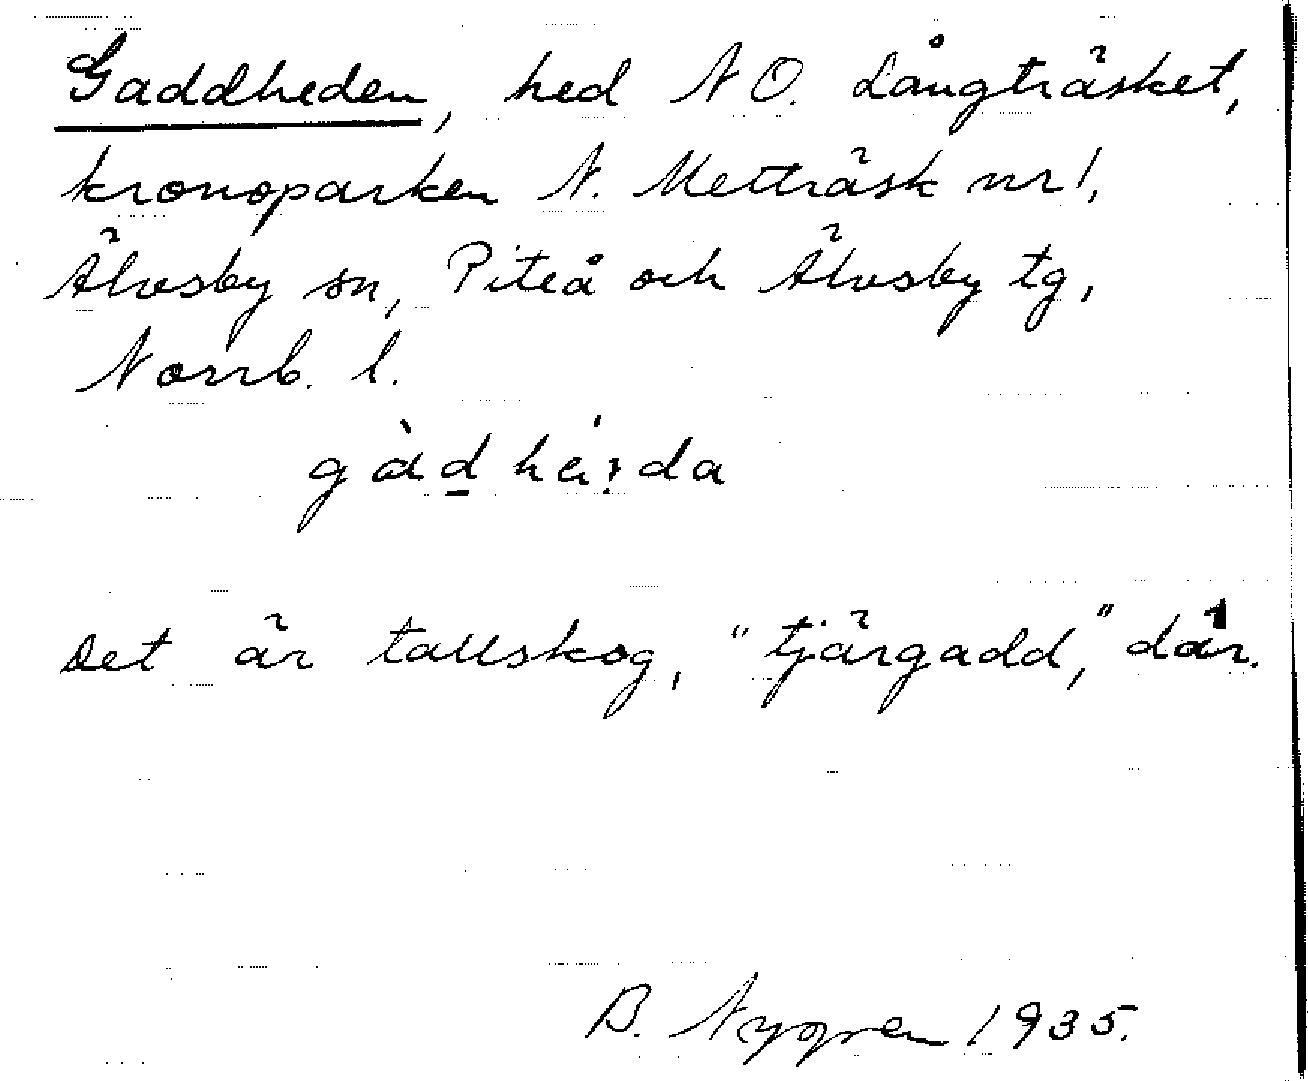 Gaddheden, hed NO. Långträsket,
kronoparken N. Metträsk nr 1,
Älvsby sn, Piteå och Älvsby tg,
Norrb. l.
gàd hé:da
Det är tallskog, "tjärgadd," där.
B. Nygren 1935.